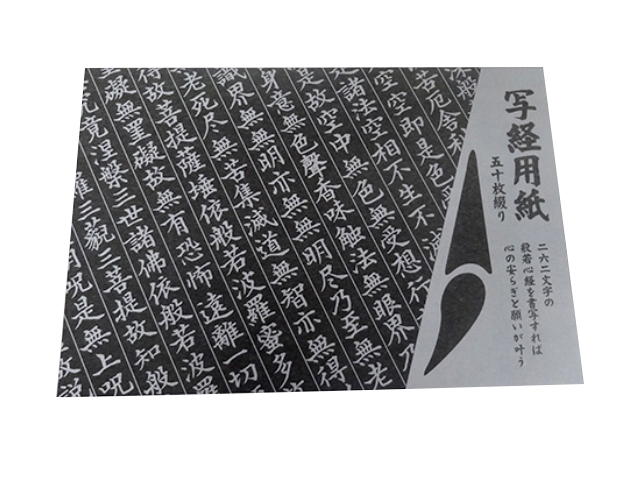 写経用紙
五十枚綴り
二六二文字の
般若心経を書写すれば
心の安らぎと願いが叶う
深般
苦厄舎利
空空即是色
是諸法空相不生不
是故空中無色無受想行
身意無色聲香味觸法無眼界乃
識界無無明亦無無明尽乃至無老
老死尽無苦集滅道無智亦無得
得故菩提薩埵依般若波羅蜜多
礙無罣礙故無有恐怖遠離一切
究竟涅槃三世諸佛依般若波羅
羅三藐三菩提故知般
明呪是無上呪
故説